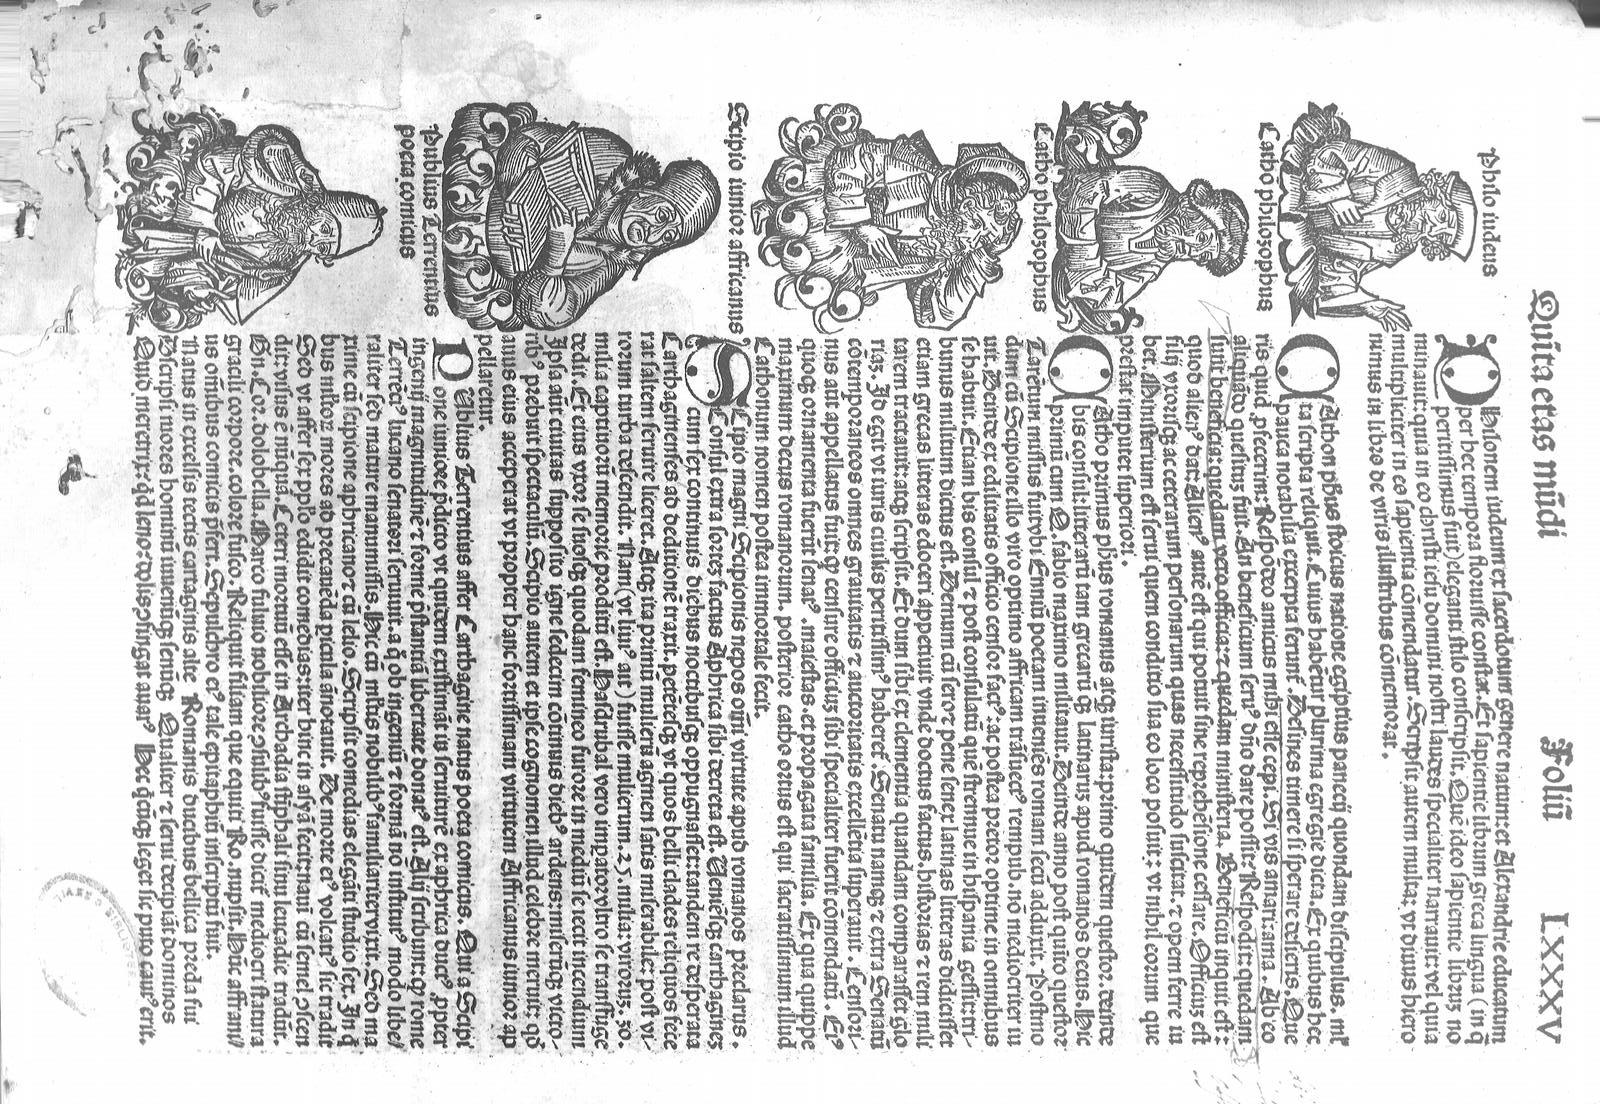 Quīta etas mūdi Foliū LXXXV
Philo iudeus
Philonem iudeum ex sacerdotum genere natum: et Alexandrie educatum
per hec tempora floruisse constat. Et sapientie librum greca lingua (in q̄
peritissimus fuit) eleganti stilo conscripsit. Quē ideo sapientie librūz no
minauit: quia in eo christi iesu domini nostri laudes specialiter narrauit: vel quia
multipliciter in eo sapientia cōmendatur. Scripsit autem multa: vt diuus hiero
nimus in libro de viris illustribus cōmemorat.
Catho philozophus
Cathon ph̄us stoicus natione egiptius panecij quondam discipulus. ml̓
ta scripta reliquit. Cuius habētur plurima egregie dicta. Ex quibus hec
pauca notabilia excerpta ferunt. Desines timere si sperare desieris. Que
ris quid pfecerim: Respōdeo amicus mihi esse cepi. Si vis amari: ama. Ab eo
aliquādo quesitus fuit. An beneficium seru᾽ dn̄o dare possit: Respodit: quedam
sunt beneficia: quedam vero officia: ⁊ quedam ministeria. Beneficiū inquit est:
quod alien᾽ dat: Alien᾽ autē est qui potuit sine reprehēsione cessare. Officiuz est
filij vxorisq̧ ac ceterarum personarum quas necessitudo suscitat. ⁊ opem ferre iu
bet. Ministerium est serui quem conditio sua eo loco posuit: vt nihil eorum que
prestat imputet superiori.
Catho philozophus
Catho primus ph̄us romanus atq̧ iurista: primo quidem questor. deinde
bis consul: literarū tam grecarū q̄ latinaruz apud romanos decus. Hic
primū cum Q. fabio maximo militauit. Deinde anno post quīto questor
Tarētum missus fuit vbi Ennium poetam inuenīēs romam secū adduxit. Postmo
dum cū Scipione illo viro optimo affricam trāsuect᾽ rempub. nō mediocriter iu
uit. Deinde ex edilitatis officio censor fact᾽: at postea pretor optime in omnibus
se habuit. Etiam bis consul ⁊ post consulatū que strennue in hispania gessit: tri
bunus militum dictus est. Demum cū sero ⁊ pene senex latinas literas didicisset
etiam grecas literas edoceri appetiuit vnde doctus factus historias ⁊ rem mili
tarem tractauit: atq̧ scripsit. Et dum sibi ex clementia quandam comparasset glo
riaz. Id egit vt iuris ciuilis peritissim᾽ haberet᾽. Senatu namq̧ ⁊ extra Senatū
cōtemporaneos omnes grauitatis ⁊ auctoritatis excellētia superauit. Censori-
nus aūt appellatus fuit: q̧ censure officiuz sibi specialiter fuerit cōmendatū. Et᾽
quoq̧ ornamenta fuerūt senat᾽. maiestas. et propagata familia. Ex qua quippe
maximum decus romanorum. posterior catho ortus est qui sacratissimum illud
Cathonum nomen postea immortale fecit.
Scipio iunior affricanus
Scipio magni Scipionis nepos oīni virtute apud romanos preclarus.
Consul extra sortez factus Aphrica sibi decreta est. Ueniēsq̧ carthaginez
cum sex continuis diebus noctibusq̧ oppugnasset: tandem re desperata
Carthaginenses ad deditionē traxit. petēteseq̧ vt quos belli clades reliquos fece
rat saltem seruire liceret. Atq̧ ita primū mulierū agmen satis miserabile: post vi-
rorum turba descendit. Nam (vt liui᾽ ait) fuisse mulierum. 25. milia: virorūz. 30.
milia captiuorū memorie proditū est. Hasdrubal vero imperator vltro se trāsfuge
dedit. Et eius vxor se suosq̧ quodam femineo furore in mediū se iecit incendium
Ipsa aūt ciuitas supposito igne sedecim cōtinuis dieb᾽ ardens: miserūq̧ victo-
rib᾽ pebuit spectaculū Scipio autem et ipse cognomen illud celebre meruit: q̧
auus eius acceperat vt propter hanc fortissimam virtutem Affricanus iunior ap
pellaretur.
Publius Terentius
poeta comicus
Publius Terentius affer Carthagine natus poeta comicus. Qui a Scipi
one iuniore p̄dicto vt quidem existimāt is seruiture ex aphrica duct᾽ ppter
ingenij magnitudinē ⁊ forme p̄stantiā libertate donat᾽ est. Alij scribunt: q̧ rome
Terēti᾽ lucano senatori seruiuit. a q̄ ob ingeniū ⁊ formā no institut᾽ modo libe/
raliter sed mature manumissus. Hic cū ml̓tis nobilib᾽ familiariter vixit. Sed ma
xime cū scipione aphricano ⁊ cū lelio. Scripsit comedias elegāti studio sex. In q̄
bus ml̓torz mores ad precauēda picula ānotauit. De morte ei᾽ volcati᾽ sic tradit
Sed vt affer sex pp̄lo edidit comedias: iter hinc in asyā fecit: nauī cū semel ascen
dit: visus ē nūq̄. Ceteri mortuū esse in Archadia stiphali sinu leucadie tradūt.
Gn. Cor. dolobella. Marco fuluio nobiliore ɔsulib᾽ fuisse dicit᾽ mediocri statura
gracili corpore colore fusco. Reliquit filiam que equiti Ro. nupsit. Hūc affrani᾽
us oībus comicis p̄fert. Sepulchro ei᾽ tale epitaphiū inscriptū fuit.
Natus in excelsis tectis cartaginis alte Romanis ducibus bellica preda fui
Descripsi mores hominū iuuenūq̧ senūq̧ Qualiter ⁊ serui decipiāt dominos
Quid meretrix: qd̓ leno: dolis ɔfingat auar᾽ Hec q̄cūq̧ leget sic puto caut᾽ erit.